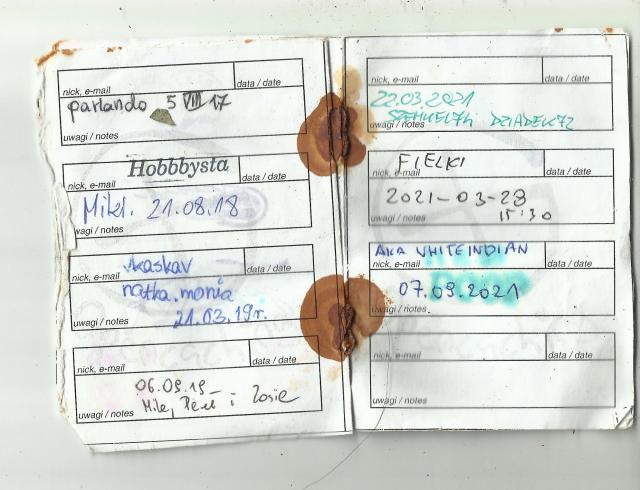 nick, e-mail data / date
parlando 5 VIII 17
uwagi / notes
Hobbbysta
nick, e-mail data / date
Miki. 21.08.18
uwagi / notes
kaskav
nick, e-mail data / date
natka.monia
21.03.19r.
uwagi / notes
nick, e-mail data / date
06.09.19
i Zosie
uwagi / notes
nick, e-mail data / date
22.03.2021
DZIADEK72
uwagi / notes
FIELKI
nick, e-mail data / date
2021-03-28
15:30
uwagi / notes
AKA WHITEINDIAN
nick, e-mail data / date
07.09.2021
uwagi / notes
nick, e-mail data / date
uwagi / notes